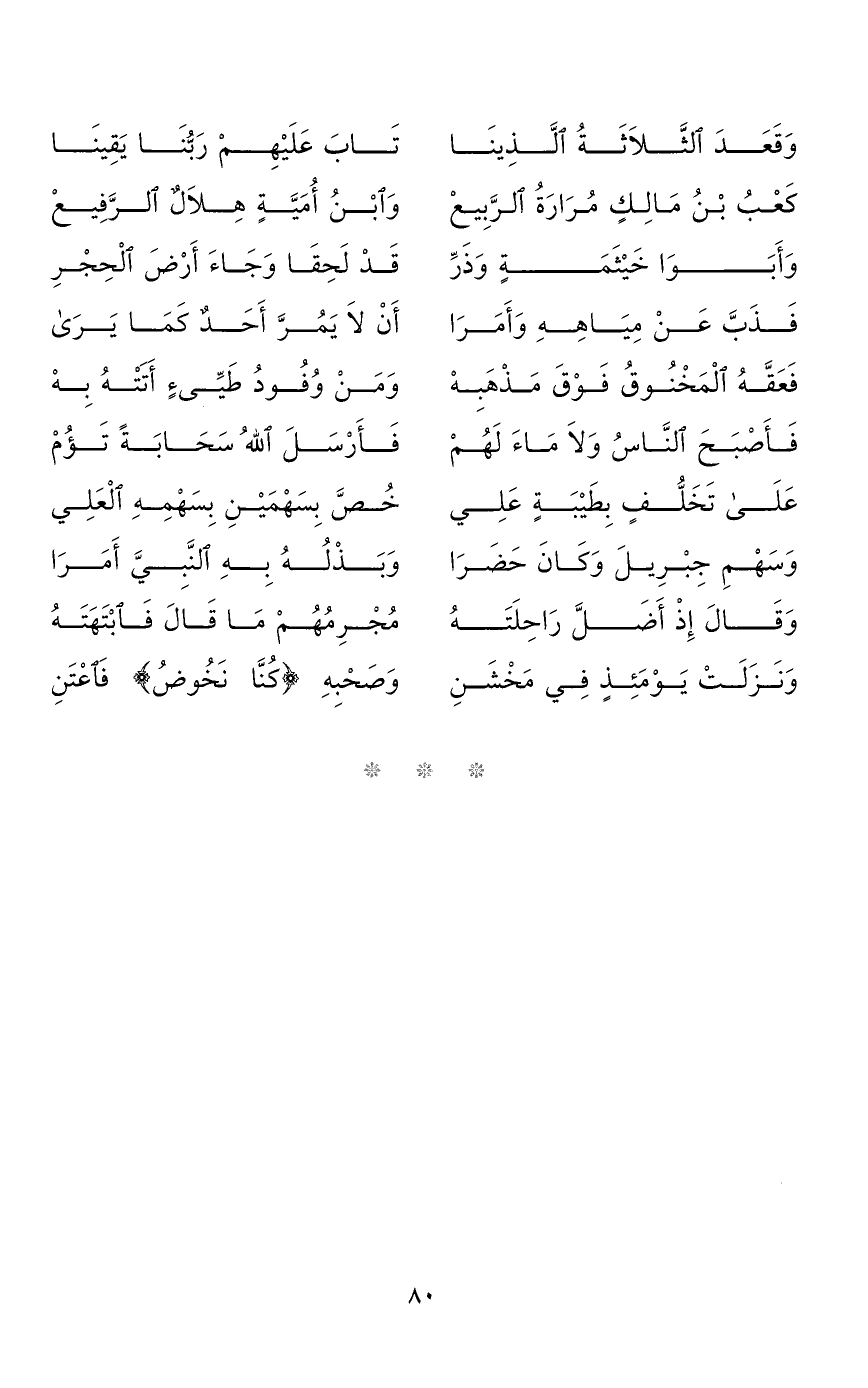 وَقَعَدَ ٱلثَّلاَثَةُ ٱلَّذِينَا تَابَ عَلَيْهِمْ رَبُّنَا يَقِينَا
كَعْبُ بْنُ مَالِكٍ مُرَارَةُ ٱلرَّبِيعْ وَٱبْنُ أُمَيَّةٍ هِلاَلٌ ٱلرَّفِيعْ
وَأَبَوَا خَيْثَمَةٍ وَذَرِّ قَدْ لَحِقَا وَجَاءَ أَرْضَ ٱلْحِجْرِ
فَذَبَّ عَنْ مِيَاهِهِ وَأَمَرَا أَنْ لاَ يَمُرَّ أَحَدٌ كَمَا يَرَىٰ
فَعَقَّهُ ٱلْمَخْنُوقُ فَوْقَ مَذْهَبِهْ وَمَنْ وُفُودُ طَيِّىءٍ أَتَتْهُ بِهْ
فَأَصْبَحَ ٱلنَّاسُ وَلاَ مَاءَ لَهُمْ فَأَرْسَلَ ٱللهُ سَحَابَةً تَؤُمْ
عَلَىٰ تَخَلُّفٍ بِطَيْبَةٍ عَلِي خُصَّ بِسَهْمَيْنِ بِسَهْمِهِ ٱلْعَلِي
وَسَهْمِ جِبْرِيلَ وَكَانَ حَضَرَا وَبَذْلُهُ بِهِ ٱلنَّبِيَّ أَمَرَا
وَقَالَ إِذْ أَضَلَّ رَاحِلَتَهُ مُجْرِمُهُمْ مَا قَالَ فَٱبْتَهَتَهُ
وَنَزَلَتْ يَوْمَئِذٍ فِي مَخْشَنِ وَصَحْبِهِ ﴿كُنَّا نَخُوضُ﴾ فَٱعْتَنِ
٨٠